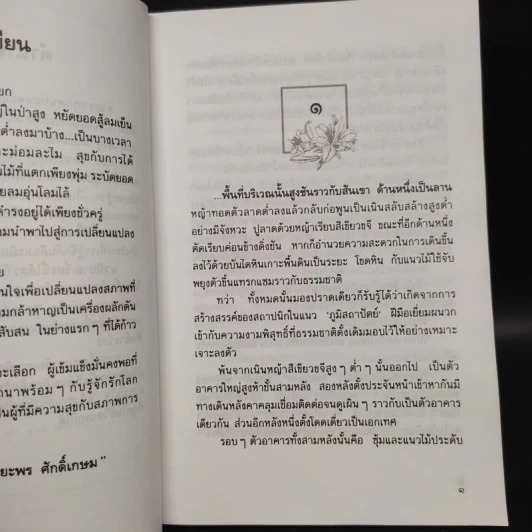 ขียน
ยก
ญ่ในป่าสูง หยัดยอดสู้ลมเย็น
ต่ำลงมาบ้าง...เป็นบางเวลา
ะม่อมละไม สุขกับการได้
นไม้ที่แตกเพียงพุ่ม ระบัดยอด
ยลมอุ่นโลมไล้
ำรงอยู่ได้เพียงชั่วครู่
มนำพาไปสู่การเปลี่ยนแปลง
ย
นใจเพื่อเปลี่ยนแปลงสภาพที่
มกล้าหาญเป็นเครื่องผลักดัน
สับสน ในย่างแรก ๆ ที่ได้ก้าว
ะเลือก ผู้เข้มแข็งมั่นคงพอที่
ถนาพร้อม ๆ กับรู้จักรักโลก
ป็นผู้ที่มีความสุขกับสภาพการ
ยะพร ศักดิ์เกษม"
๑
...พื้นที่บริเวณนั้นสูงชันราวกับสันเขา ด้านหนึ่งเป็นลาน
หญ้าทอดตัวลาดต่ำลงแล้วกลับก่อพูนเป็นเนินสลับสล้างสูงต่ำ
อย่างมีจังหวะ ปูลาดด้วยหญ้าเรียบสีเขียวขจี ขณะที่อีกด้านหนึ่ง
ตัดเรียบค่อนข้างดิ่งชัน หากก็อำนวยความสะดวกในการเดินขึ้น
ลงไว้ด้วยบันไดหินเกาะพื้นดินเป็นระยะ โขดหิน กับแนวไม้ใช้จับ
พยุงตัวขึ้นแทรกแซมราวกับธรรมชาติ
ทว่า ทั้งหมดนั้นมองปราดเดียวก็รับรู้ได้ว่าเกิดจากการ
สร้างสรรค์ของสถาปนิกในแนว 'ภูมิสถาปัตย์' ฝีมือเยี่ยมผนวก
เข้ากับความงามพิสุทธิ์ที่ธรรมชาติดั้งเดิมมอบไว้ให้อย่างเหมาะ
เจาะลงตัว
พ้นจากเนินหญ้าสีเขียวขจีสูง ๆ ต่ำ ๆ นั้นออกไป เป็นตัว
อาคารใหญ่สูงห้าชั้นสามหลัง สองหลังตั้งประจันหน้าเข้าหากันมี
ทางเดินหลังคาคลุมเชื่อมติดต่อจนดูเผิน ๆ ราวกับเป็นตัวอาคาร
เดียวกัน ส่วนอีกหลังหนึ่งตั้งโดดเดี่ยวเป็นเอกเทศ
รอบ ๆ ตัวอาคารทั้งสามหลังนั้นคือ ซุ้มและแนวไม้ประดับ
๑